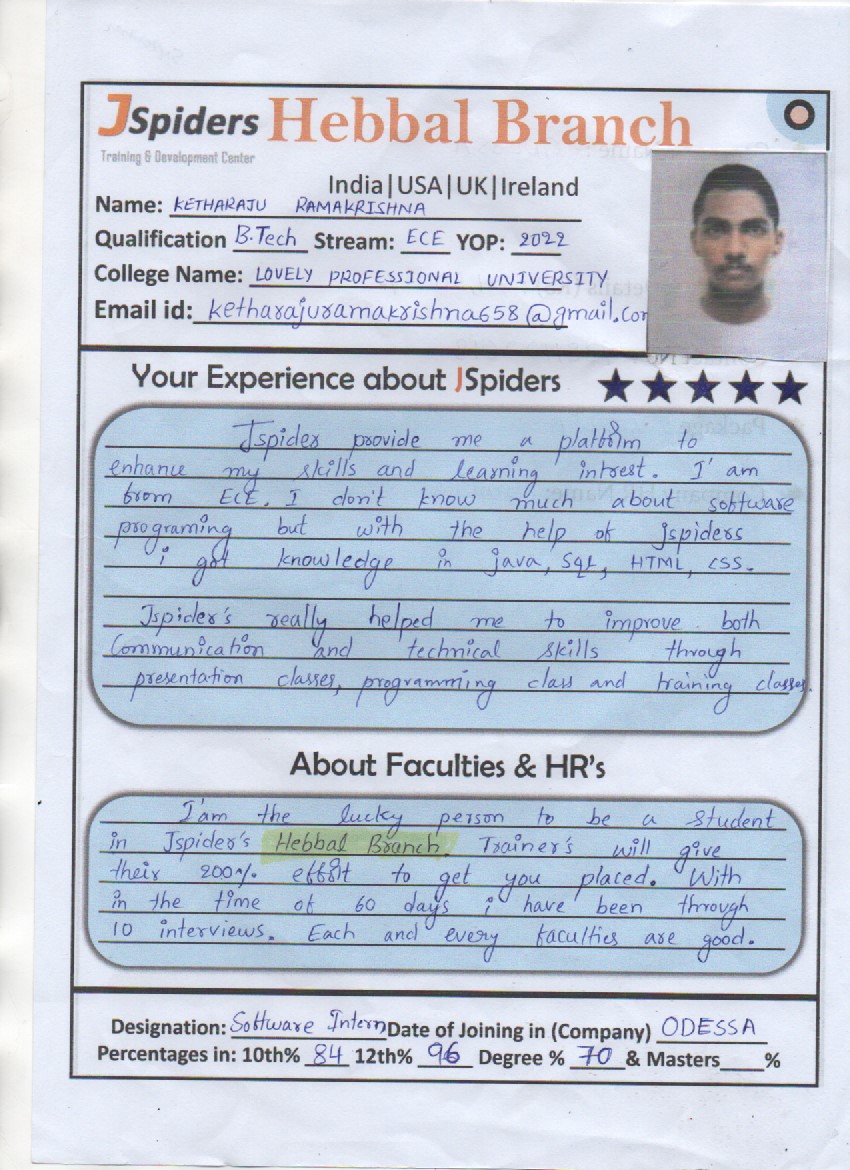 JSpiders Hebbal Branch
Training & Development Center
India|USA|UK|Ireland
Name: KETHARAJU RAMAKRISHNA
Qualification B.Tech Stream: ECE YOP: 2022
College Name: LOVELY PROFESSIONAL UNIVERSITY
Email id: ketharajuramakrishna658@gmail.com
Your Experience about JSpiders ★★★★★
Jspider provide me a platform to
enhance my skills and learning intrest. I'am
from ECE. I don't know much about software
programing but with the help of jspiders
i got knowledge in java, SQL, HTML, CSS.
Jspider's really helped me to improve both
Communication and technical skills through
presentation classes, programming class and training classes.
About Faculties & HR's
I'am the lucky person to be a student
in Jspider's Hebbal Branch. Trainer's will give
their 200% effort to get you placed. With
in the time of 60 days i have been through
10 interviews. Each and every faculties are good.
Designation: Software Intern Date of Joining in (Company) ODESSA
Percentages in: 10th% 84 12th% 96 Degree % 70 & Masters____%